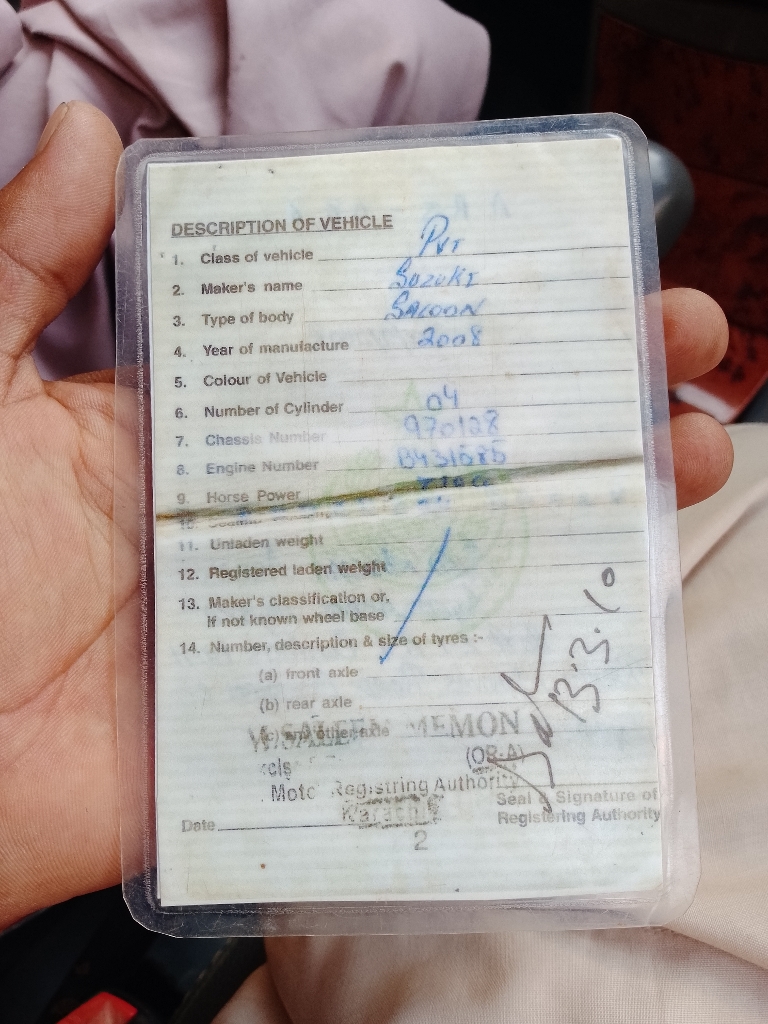 DESCRIPTION OF VEHICLE
1. Class of vehicle PVT
2. Maker's name SUZUKI
3. Type of body SALOON
4. Year of manufacture 2008
5. Colour of Vehicle
6. Number of Cylinder 04
7. Chassis Number 970128
8. Engine Number
9. Horse Power
10.
11. Unladen weight
12. Registered laden weight
13. Maker's classification or.
If not known wheel base
14. Number, description & size of tyres :-
(a) front axle
(b) rear axle
(c) any other axle
SALEEM MEMON
(OR-A)
Registring Authority
Karachi
13.3.10
Seal & Signature of
Registering Authority
Date
2